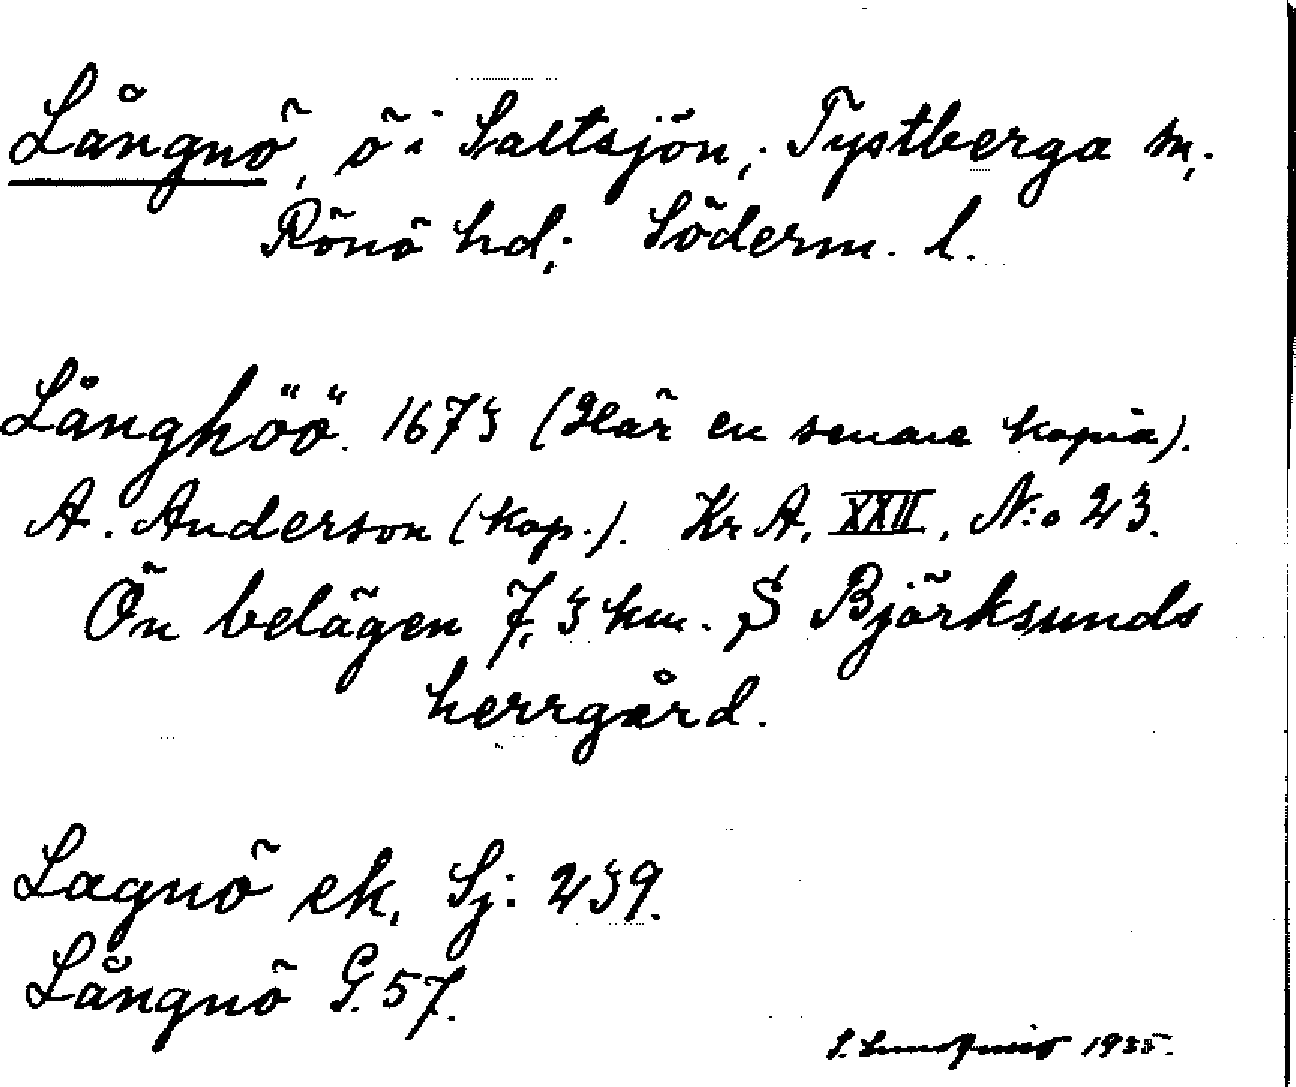 Långnö, ö i Saltsjön; Tystberga sn,;
Rönö hd,; Söderm. l.
Långhöö. 1673 (Här en senare kopia).
A. Anderson (kop.). Kr A. XXII, N:o 23.
Ön belägen 7,3 km. S Björksunds
herrgård.
Lagnö ek, Sj: 239.
Långnö G. 57.
S. 1935.